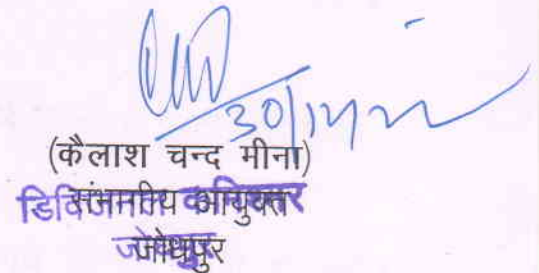 30/12/22
(कैलाश चन्द मीना)
संभागीय आयुक्त
डिविजनल कमिश्नर
जोधपुर
जोधपुर